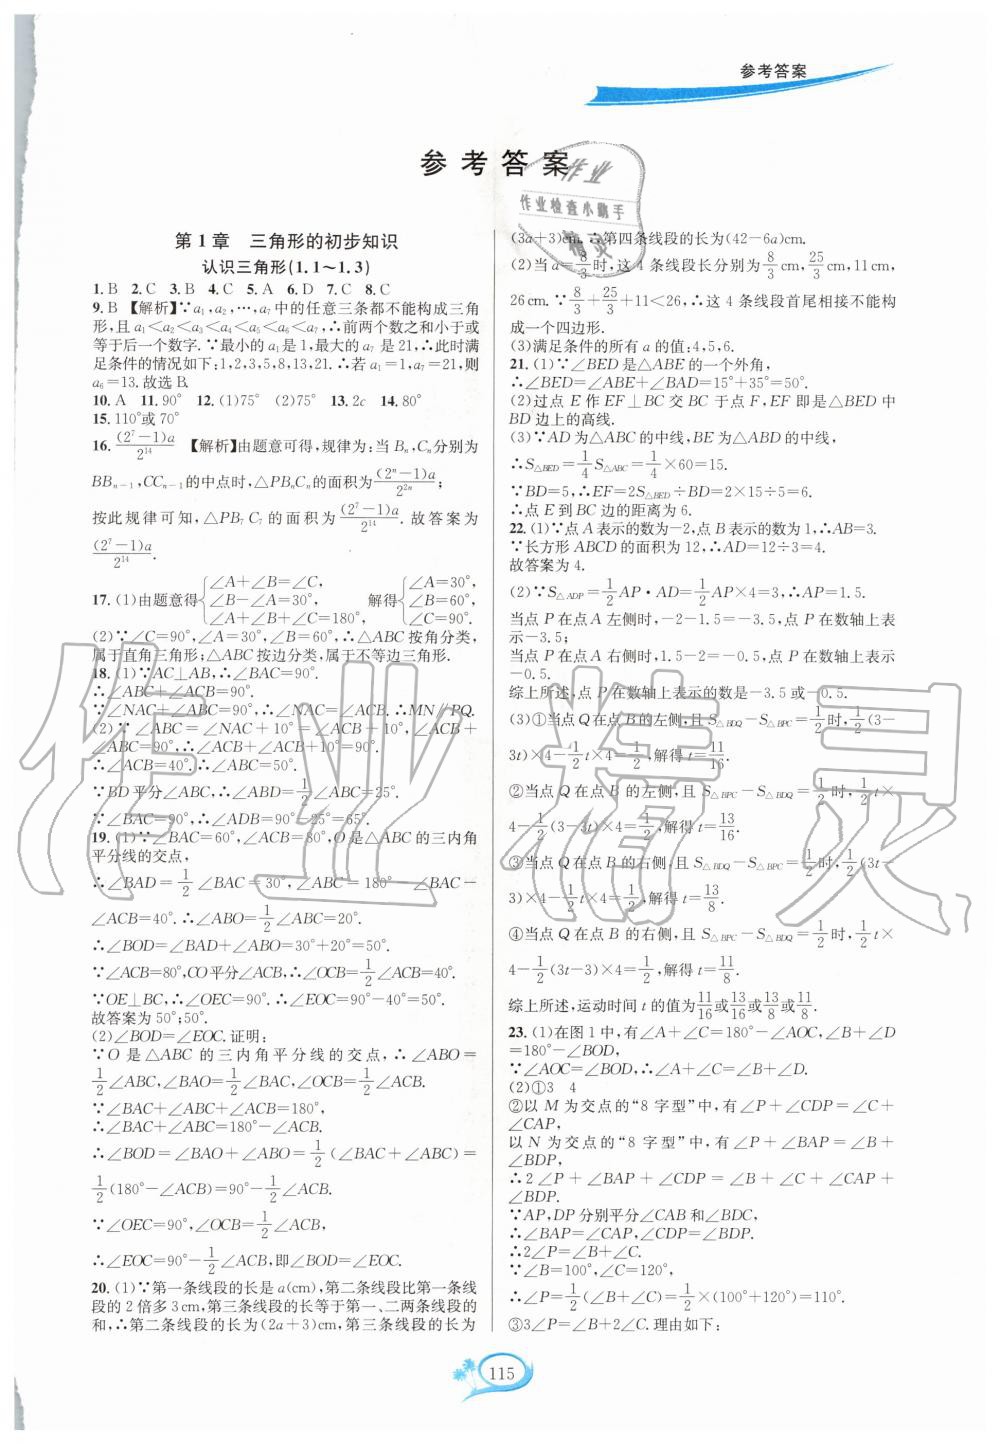 参考答案
参考答案
作业
作业检查小助手
精灵
第1章 三角形的初步知识
认识三角形(1.1～1.3)
1.B 2.C 3.B 4.C 5.A 6.D 7.C 8.C
9.B 【解析】∵a₁,a₂,…,a₇中的任意三条都不能构成三角
形,且a₁<a₂<a₃<a₄<a₅<a₆<a₇,∴前两个数之和小于或
等于后一个数字.∵最小的a₁是1,最大的a₇是21,∴此时满
足条件的情况如下:1,2,3,5,8,13,21.∴若a₁=1,a₇=21,则
a₆=13.故选B.
10.A 11.90° 12.(1)75° (2)75° 13.2c 14.80°
15.110°或70°
16.(2⁷−1)a/2¹⁴ 【解析】由题意可得,规律为:当Bₙ,Cₙ分别为
BBₙ₋₁,CCₙ₋₁的中点时,△PBₙCₙ的面积为(2ⁿ−1)a/2²ⁿ;
按此规律可知,△PB₇C₇的面积为(2⁷−1)a/2¹⁴.故答案为
(2⁷−1)a/2¹⁴.
17.(1)由题意得{∠A+∠B=∠C, ∠B−∠A=30°, ∠A+∠B+∠C=180°, 解得{∠A=30°, ∠B=60°, ∠C=90°.
(2)∵∠C=90°,∠A=30°,∠B=60°,∴△ABC按角分类,
属于直角三角形;△ABC按边分类,属于不等边三角形.
18.(1)∵AC⊥AB,∴∠BAC=90°.
∴∠ABC+∠ACB=90°.
∵∠NAC+∠ABC=90°,∴∠NAC=∠ACB.∴MN∥PQ.
(2)∵∠ABC=∠NAC+10°=∠ACB+10°,∠ACB+
∠ABC=90°,∴∠ACB+∠ACB+10°=90°.
∴∠ACB=40°.∴∠ABC=50°.
∵BD平分∠ABC,∴∠ABD=1/2∠ABC=25°.
∵∠BAC=90°,∴∠ADB=90°−25°=65°.
19.(1)∵∠BAC=60°,∠ACB=80°,O是△ABC的三内角
平分线的交点,
∴∠BAD=1/2∠BAC=30°,∠ABC=180°−∠BAC−
∠ACB=40°.∴∠ABO=1/2∠ABC=20°.
∴∠BOD=∠BAD+∠ABO=30°+20°=50°.
∵∠ACB=80°,CO平分∠ACB,∴∠OCB=1/2∠ACB=40°.
∵OE⊥BC,∴∠OEC=90°.∴∠EOC=90°−40°=50°.
故答案为50°;50°.
(2)∠BOD=∠EOC.证明:
∵O是△ABC的三内角平分线的交点,∴∠ABO=
1/2∠ABC,∠BAO=1/2∠BAC,∠OCB=1/2∠ACB.
∵∠BAC+∠ABC+∠ACB=180°,
∴∠BAC+∠ABC=180°−∠ACB.
∴∠BOD=∠BAO+∠ABO=1/2(∠BAC+∠ABC)=
1/2(180°−∠ACB)=90°−1/2∠ACB.
∵∠OEC=90°,∠OCB=1/2∠ACB,
∴∠EOC=90°−1/2∠ACB,即∠BOD=∠EOC.
20.(1)∵第一条线段的长是a(cm),第二条线段比第一条线
段的2倍多3cm,第三条线段的长等于第一、二两条线段的
和,∴第二条线段的长为(2a+3)cm,第三条线段的长为
(3a+3)cm.∴第四条线段的长为(42−6a)cm.
(2)当a=8/3时,这4条线段长分别为8/3cm,25/3cm,11cm,
26cm.∵8/3+25/3+11<26,∴这4条线段首尾相接不能构
成一个四边形.
(3)满足条件的所有a的值:4,5,6.
21.(1)∵∠BED是△ABE的一个外角,
∴∠BED=∠ABE+∠BAD=15°+35°=50°.
(2)过点E作EF⊥BC交BC于点F,EF即是△BED中
BD边上的高线.
(3)∵AD为△ABC的中线,BE为△ABD的中线,
∴S△BED=1/4S△ABC=1/4×60=15.
∵BD=5,∴EF=2S△BED÷BD=2×15÷5=6.
∴点E到BC边的距离为6.
22.(1)∵点A表示的数为−2,点B表示的数为1,∴AB=3.
∵长方形ABCD的面积为12,∴AD=12÷3=4.
故答案为4.
(2)∵S△ADP=1/2AP·AD=1/2AP×4=3,∴AP=1.5.
当点P在点A左侧时,−2−1.5=−3.5,点P在数轴上表
示−3.5;
当点P在点A右侧时,1.5−2=−0.5,点P在数轴上表示
−0.5.
综上所述,点P在数轴上表示的数是−3.5或−0.5.
(3)①当点Q在点B的左侧,且S△BDQ−S△BPC=1/2时,1/2(3−
3t)×4−1/2t×4=1/2,解得t=11/16.
②当点Q在点B的左侧,且S△BPC−S△BDQ=1/2时,1/2t×
4−1/2(3−3t)×4=1/2,解得t=13/16.
③当点Q在点B的右侧,且S△BDQ−S△BPC=1/2时,1/2(3t−
3)×4−1/2t×4=1/2,解得t=13/8.
④当点Q在点B的右侧,且S△BPC−S△BDQ=1/2时,1/2t×
4−1/2(3t−3)×4=1/2,解得t=11/8.
综上所述,运动时间t的值为11/16或13/16或13/8或11/8.
23.(1)在图1中,有∠A+∠C=180°−∠AOC,∠B+∠D
=180°−∠BOD,
∵∠AOC=∠BOD,∴∠A+∠C=∠B+∠D.
(2)①3 4
②以M为交点的“8字型”中,有∠P+∠CDP=∠C+
∠CAP,
以N为交点的“8字型”中,有∠P+∠BAP=∠B+
∠BDP,
∴2∠P+∠BAP+∠CDP=∠B+∠C+∠CAP+
∠BDP.
∵AP,DP分别平分∠CAB和∠BDC,
∴∠BAP=∠CAP,∠CDP=∠BDP.
∴2∠P=∠B+∠C.
∵∠B=100°,∠C=120°,
∴∠P=1/2(∠B+∠C)=1/2×(100°+120°)=110°.
③3∠P=∠B+2∠C.理由如下:
作业精灵
115